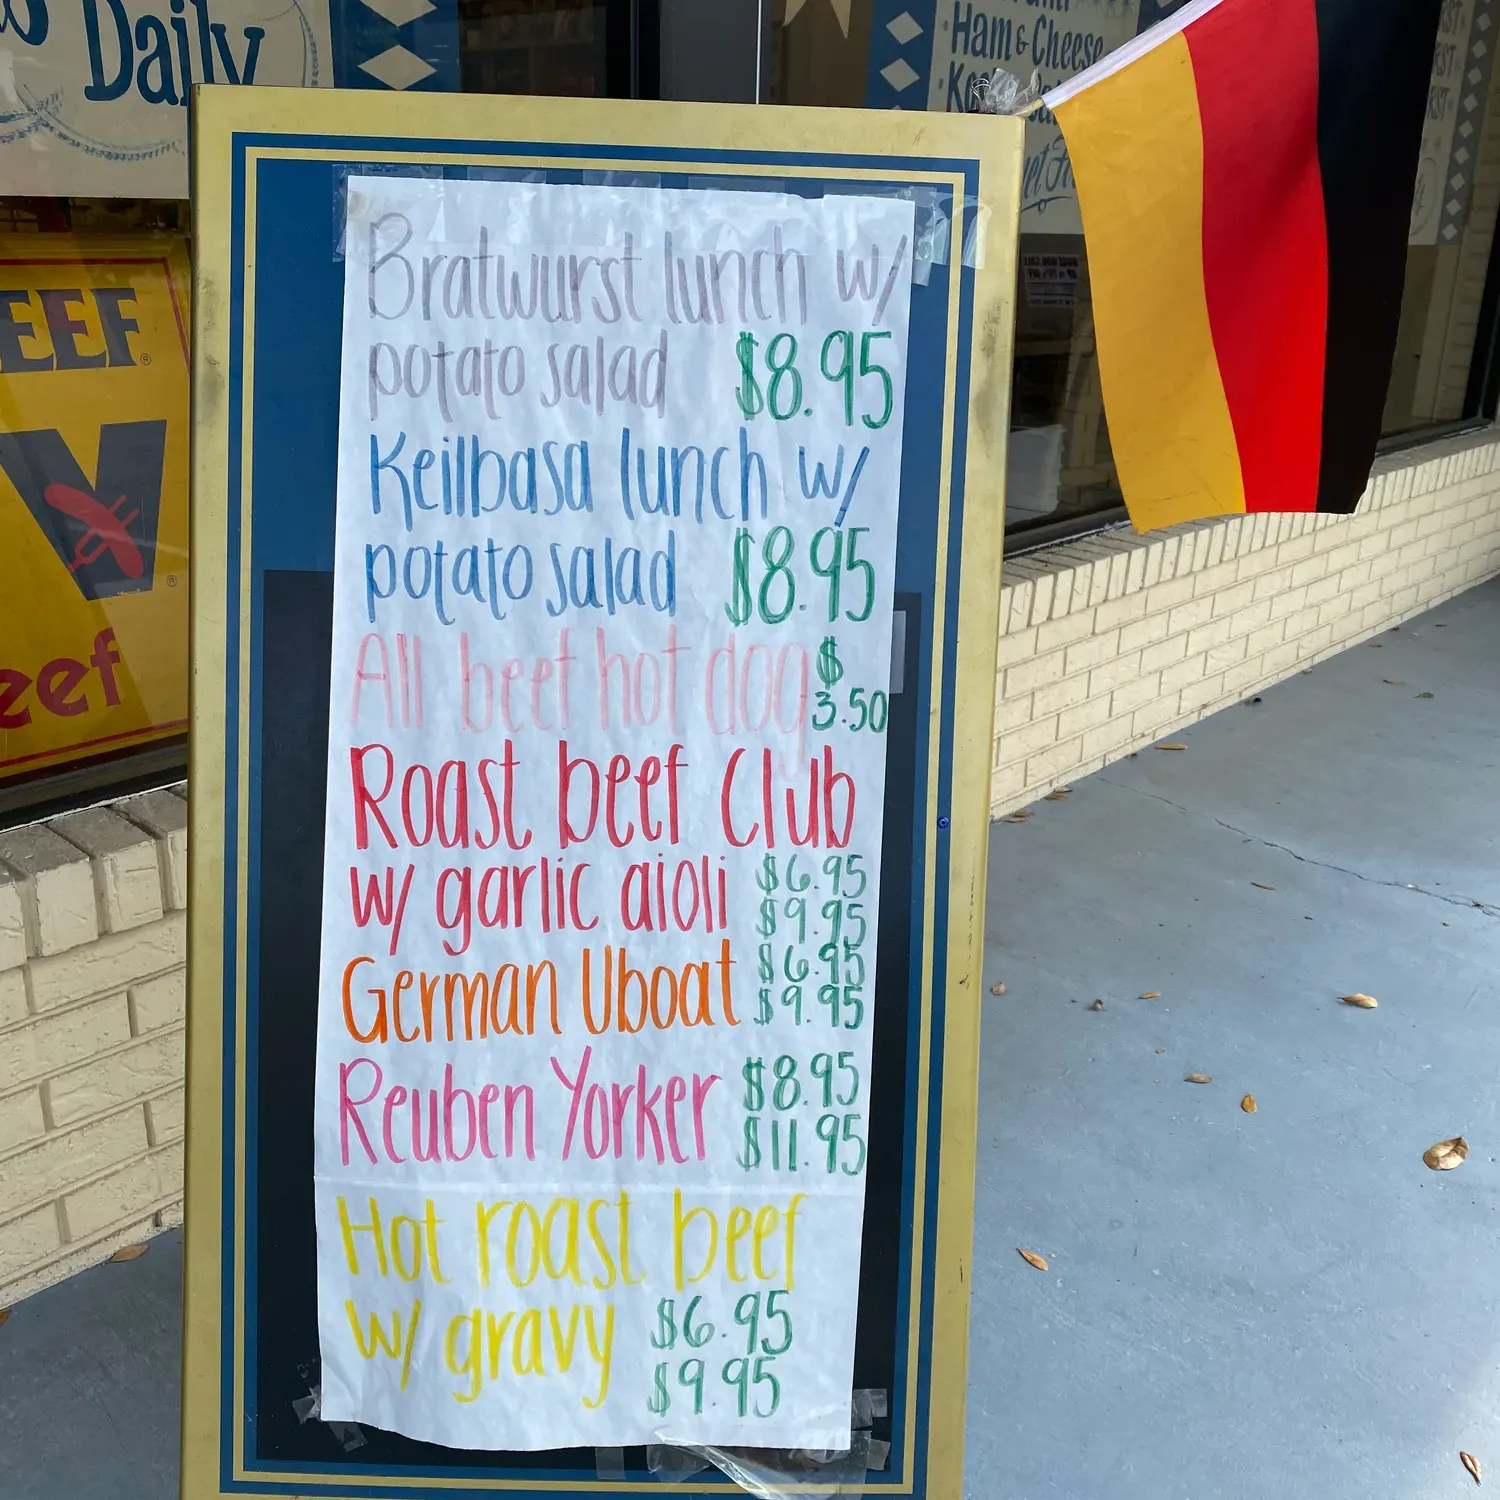 Daily
Ham & Cheese
EEF
®
V
®
eef
Bratwurst lunch w/
potato salad $8.95
Keilbasa lunch w/
potato salad $8.95
All beef hot dog $
3.50
Roast beef Club
w/ garlic aioli $6.95
$9.95
German Uboat $6.95
$9.95
Reuben Yorker $8.95
$11.95
Hot roast beef
w/ gravy $6.95
$9.95